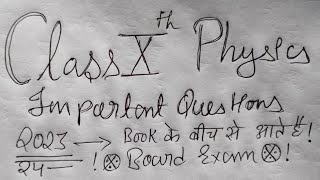 Class Xth Physics
Important Questions
2023 → Book के बीच से आते हैं!
24 — ! ⊗ Board Exam ⊗ !